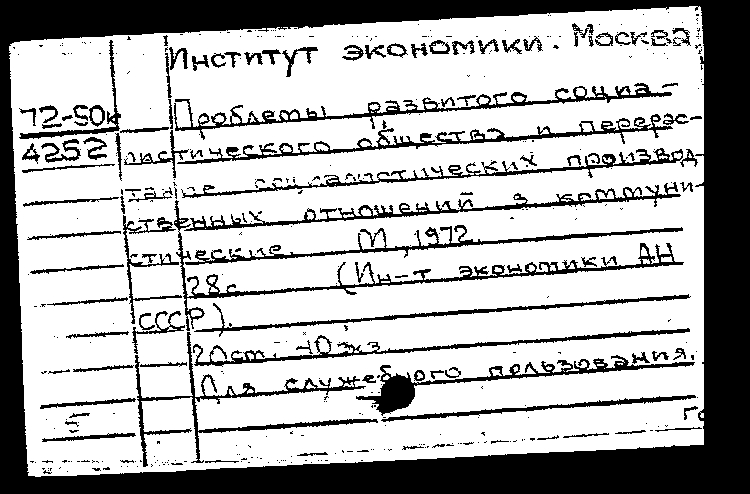 Институт экономики. Москва.
72-50к Проблемы развитого социа-
4252 листического общества и перерас-
тание социалистических производ-
ственных отношений в коммуни-
стические. М., 1972.
28с (Ин-т экономики АН
СССР).
20см. экз.
Для служебного пользования.
5